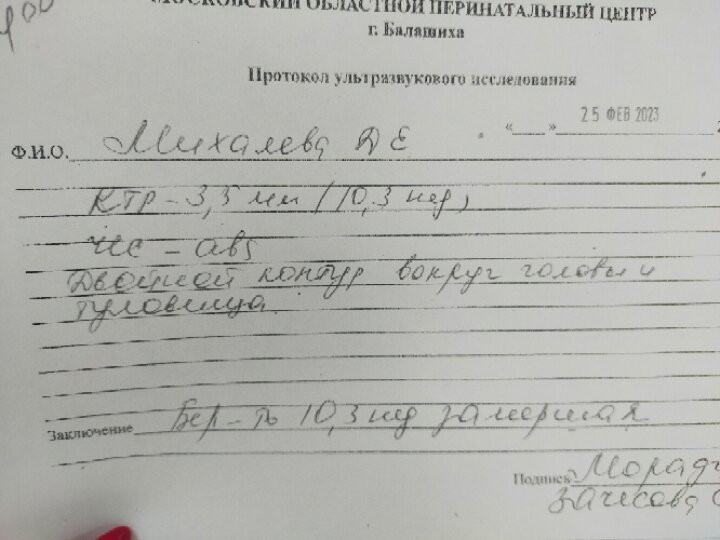 МОСКОВСКИЙ ОБЛАСТНОЙ ПЕРИНАТАЛЬНЫЙ ЦЕНТР
г. Балашиха
Протокол ультразвукового исследования
« » 25 ФЕВ 2023
Ф.И.О. Михалева Д Е
КТР - 3,5 мм (10,3 нед)
ЧС - abs
Двойной контур вокруг головы и
туловища.
Заключение Бер-ть 10,3 нед замершая
Подпись